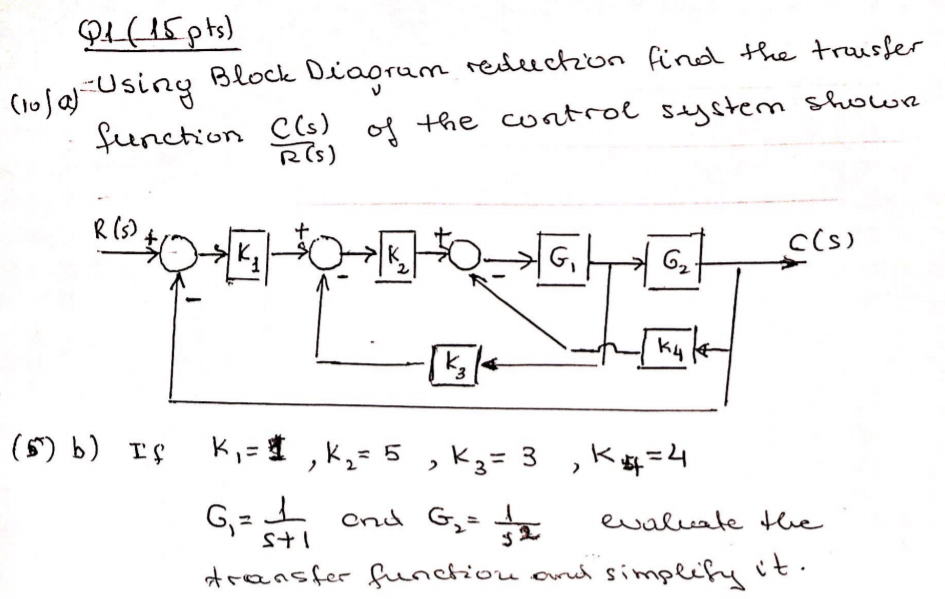 Q1 (15 pts)
(10) a) -Using Block Diagram reduction find the trausfer
function C(s)/R(s) of the control system shown
R(s) + K1 + K2 + G1 G2 C(s)
- - -
K3 K4
(5) b) If K1 = 1, K2 = 5, K3 = 3, K4 = 4
G1 = 1/s+1 and G2 = 1/s2 evaluate the
transfer function and simplify it.